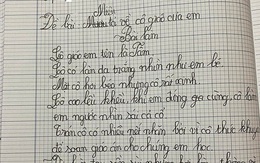 Mẫu
Đề bài: tả về cô giáo của em
Bài làm
Cô giáo em tên là Tâm
Cô có làn da trắng nhìn như em bé
Mắt cô hơi béo nhưng cô rất xinh
Cô cao kều khều, khi em đứng gần cũng, cô làm
em người nhìn rất cả cổ
Trán cô có nhiều nếp nhăn bởi vì cô thức khuya
để soạn giáo án cho chúng em học.